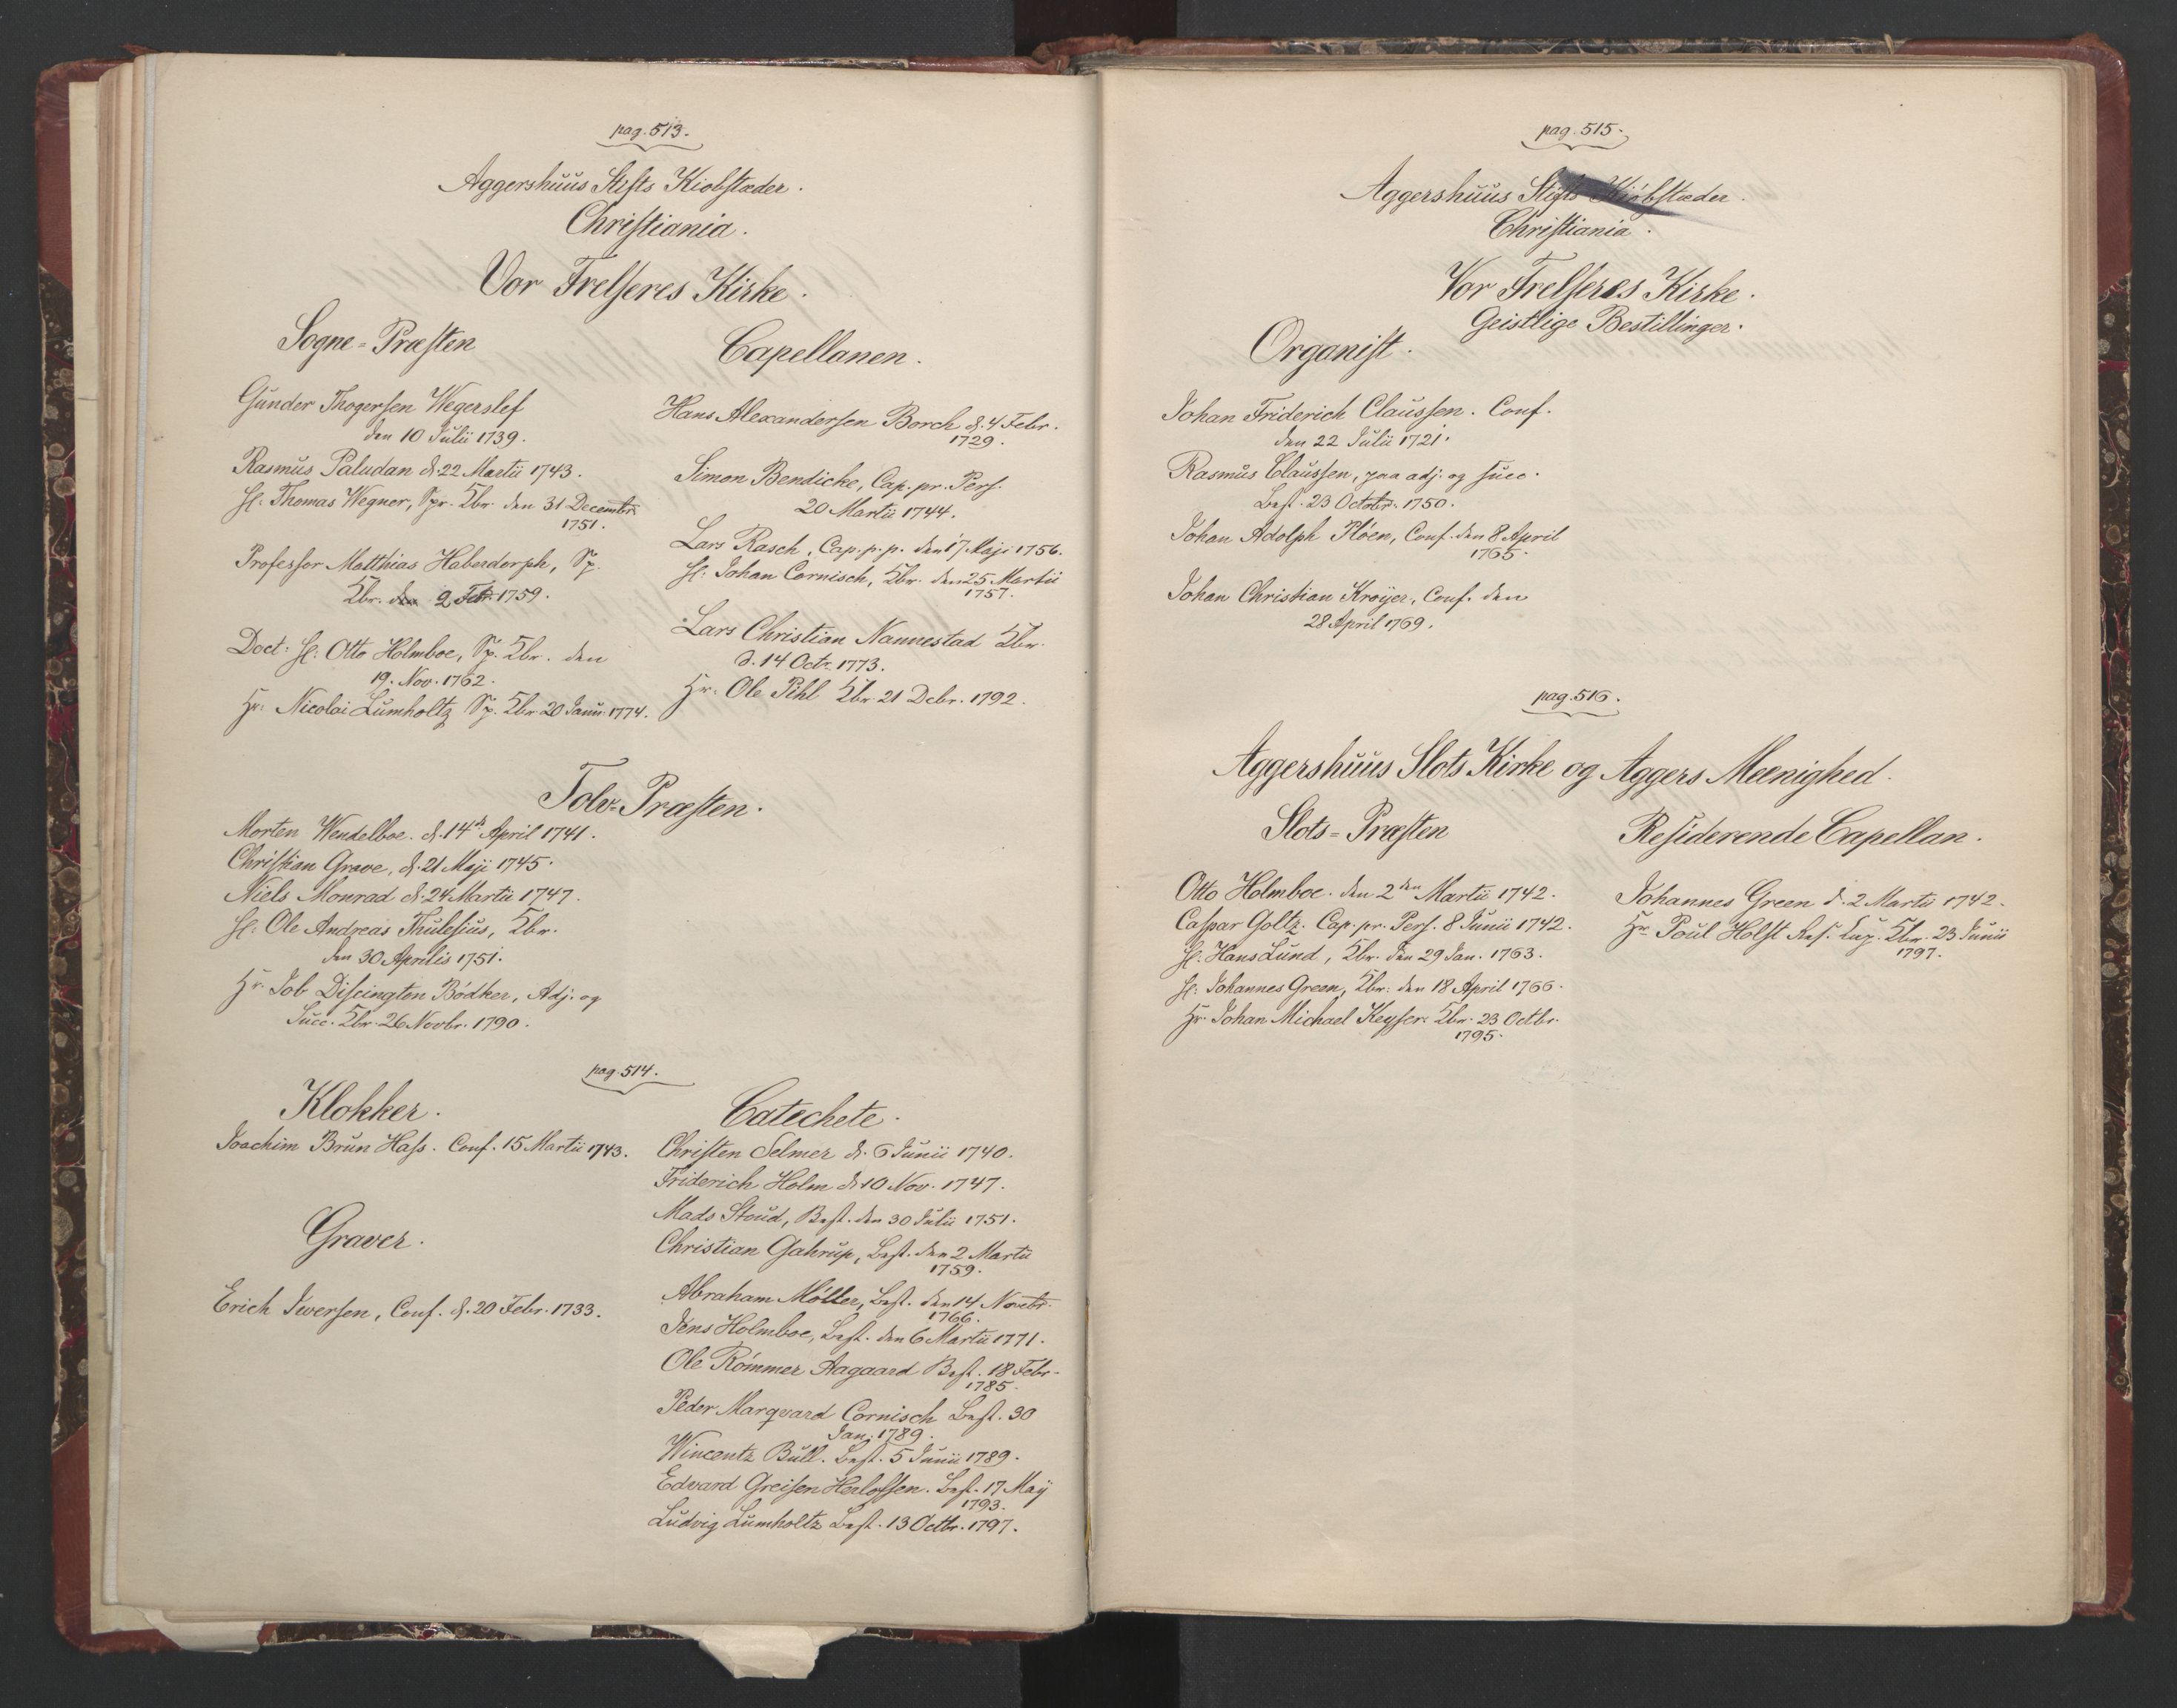 pag. 513.
Aggershuus Stifts Kiobstæder.
Christiania.
Vor Frelseres Kirke.
Sogne-Præsten
Gunder Thogersen Wegerslef
den 10 Julii 1739.
Rasmus Paludan d. 22 Martii 1743.
Hr: Thomas Wegner, Spr. Kbr. den 31 Decembr.
1751.
Professor Matthias Haberdorph, Sp.
Kbr. den 2 Febr. 1759.
Doct: Hr: Otto Holmboe, Sp. Kbr. den
19. Nov. 1762.
Hr: Nicolai Lumholtz Sp. Kbr. 20 Janu: 1774.
Capellanen.
Hans Alexandersen Borch d. 4 Febr.
1729.
Simon Bendicke, Cap. pr. Pers.
20 Martii 1744.
Lars Rasch, Cap. p. p. den 17 Maji 1756.
Hr: Johan Cornisch, Kbr. den 25 Martii
1757.
Lars Christian Nannestad Kbr.
d. 14 Octr. 1773.
Hr. Ole Pihl Kbr. 21 Debr. 1792.
Tolv-Præsten.
Morten Wendelboe. d. 14de April 1741.
Christian Grave, d. 21 Maji 1745.
Niels Monrad d. 24 Martii 1747.
Hr: Ole Andreas Thulesius, Kbr.
den 30 Aprilis 1751.
Hr. Job Discington Bödker, Adj. og
Succ. Kbr. 26 Novbr. 1790.
pag. 514.
Klokker.
Joachim Brun Hass. Conf. 15 Martii 1743.
Graver.
Erich Iversen, Conf. d. 20 Febr. 1733.
Catechete.
Christen Selmer d. 6 Junii 1740.
Friderich Holm d. 10 Nov. 1747.
Mads Stoud, Best. den 30 Julii 1751.
Christian Gahrup, Best. den 2 Martii
1759.
Abraham Möller, Best. den 14 Novebr.
1766.
Jens Holmboe, Best. den 6 Martii 1771.
Ole Römmer Aagaard Best. 18 Febr.
1785.
Peder Marqvard Cornisch Best. 30
Jan: 1789.
Wincentz Bull. Best. 5 Junii 1789.
Edvard Greisen Herlofsen. Best. 17 Maÿ
1793.
Ludvig Lumholtz Best. 13 Octbr. 1797.
pag. 515.
Aggershuus Stifts Kiöbstæder.
Christiania.
Vor Frelseres Kirke.
Geistlige Bestillinger.
Organist.
Johan Friderich Claussen. Conf.
den 22 Julii 1721.
Rasmus Claussen, paa adj. og succ.
Best. 23 Octobr. 1750.
Johan Adolph Plöen, Conf. den 8 April
1765.
Johan Christian Kroÿer, Conf. den
28 April 1769.
pag. 516.
Aggershuus Slots Kirke og Aggers Meenighed.
Slots-Præsten
Otto Holmboe. den 2den Martii 1742.
Caspar Goltz. Cap. pr. Pers. 8 Junii 1742.
Hr: Hans Lund, Kbr. den 29 Jan. 1763.
Hr: Johannes Green, Kbr: den 18 April 1766.
Hr. Johan Michael Keyser: Kbr. 23 Octbr.
1795.
Residerende Capellan.
Johannes Green d. 2 Martii 1742.
Hr. Poul Holst Res. Cap. Kbr. 23 Junii
1797.